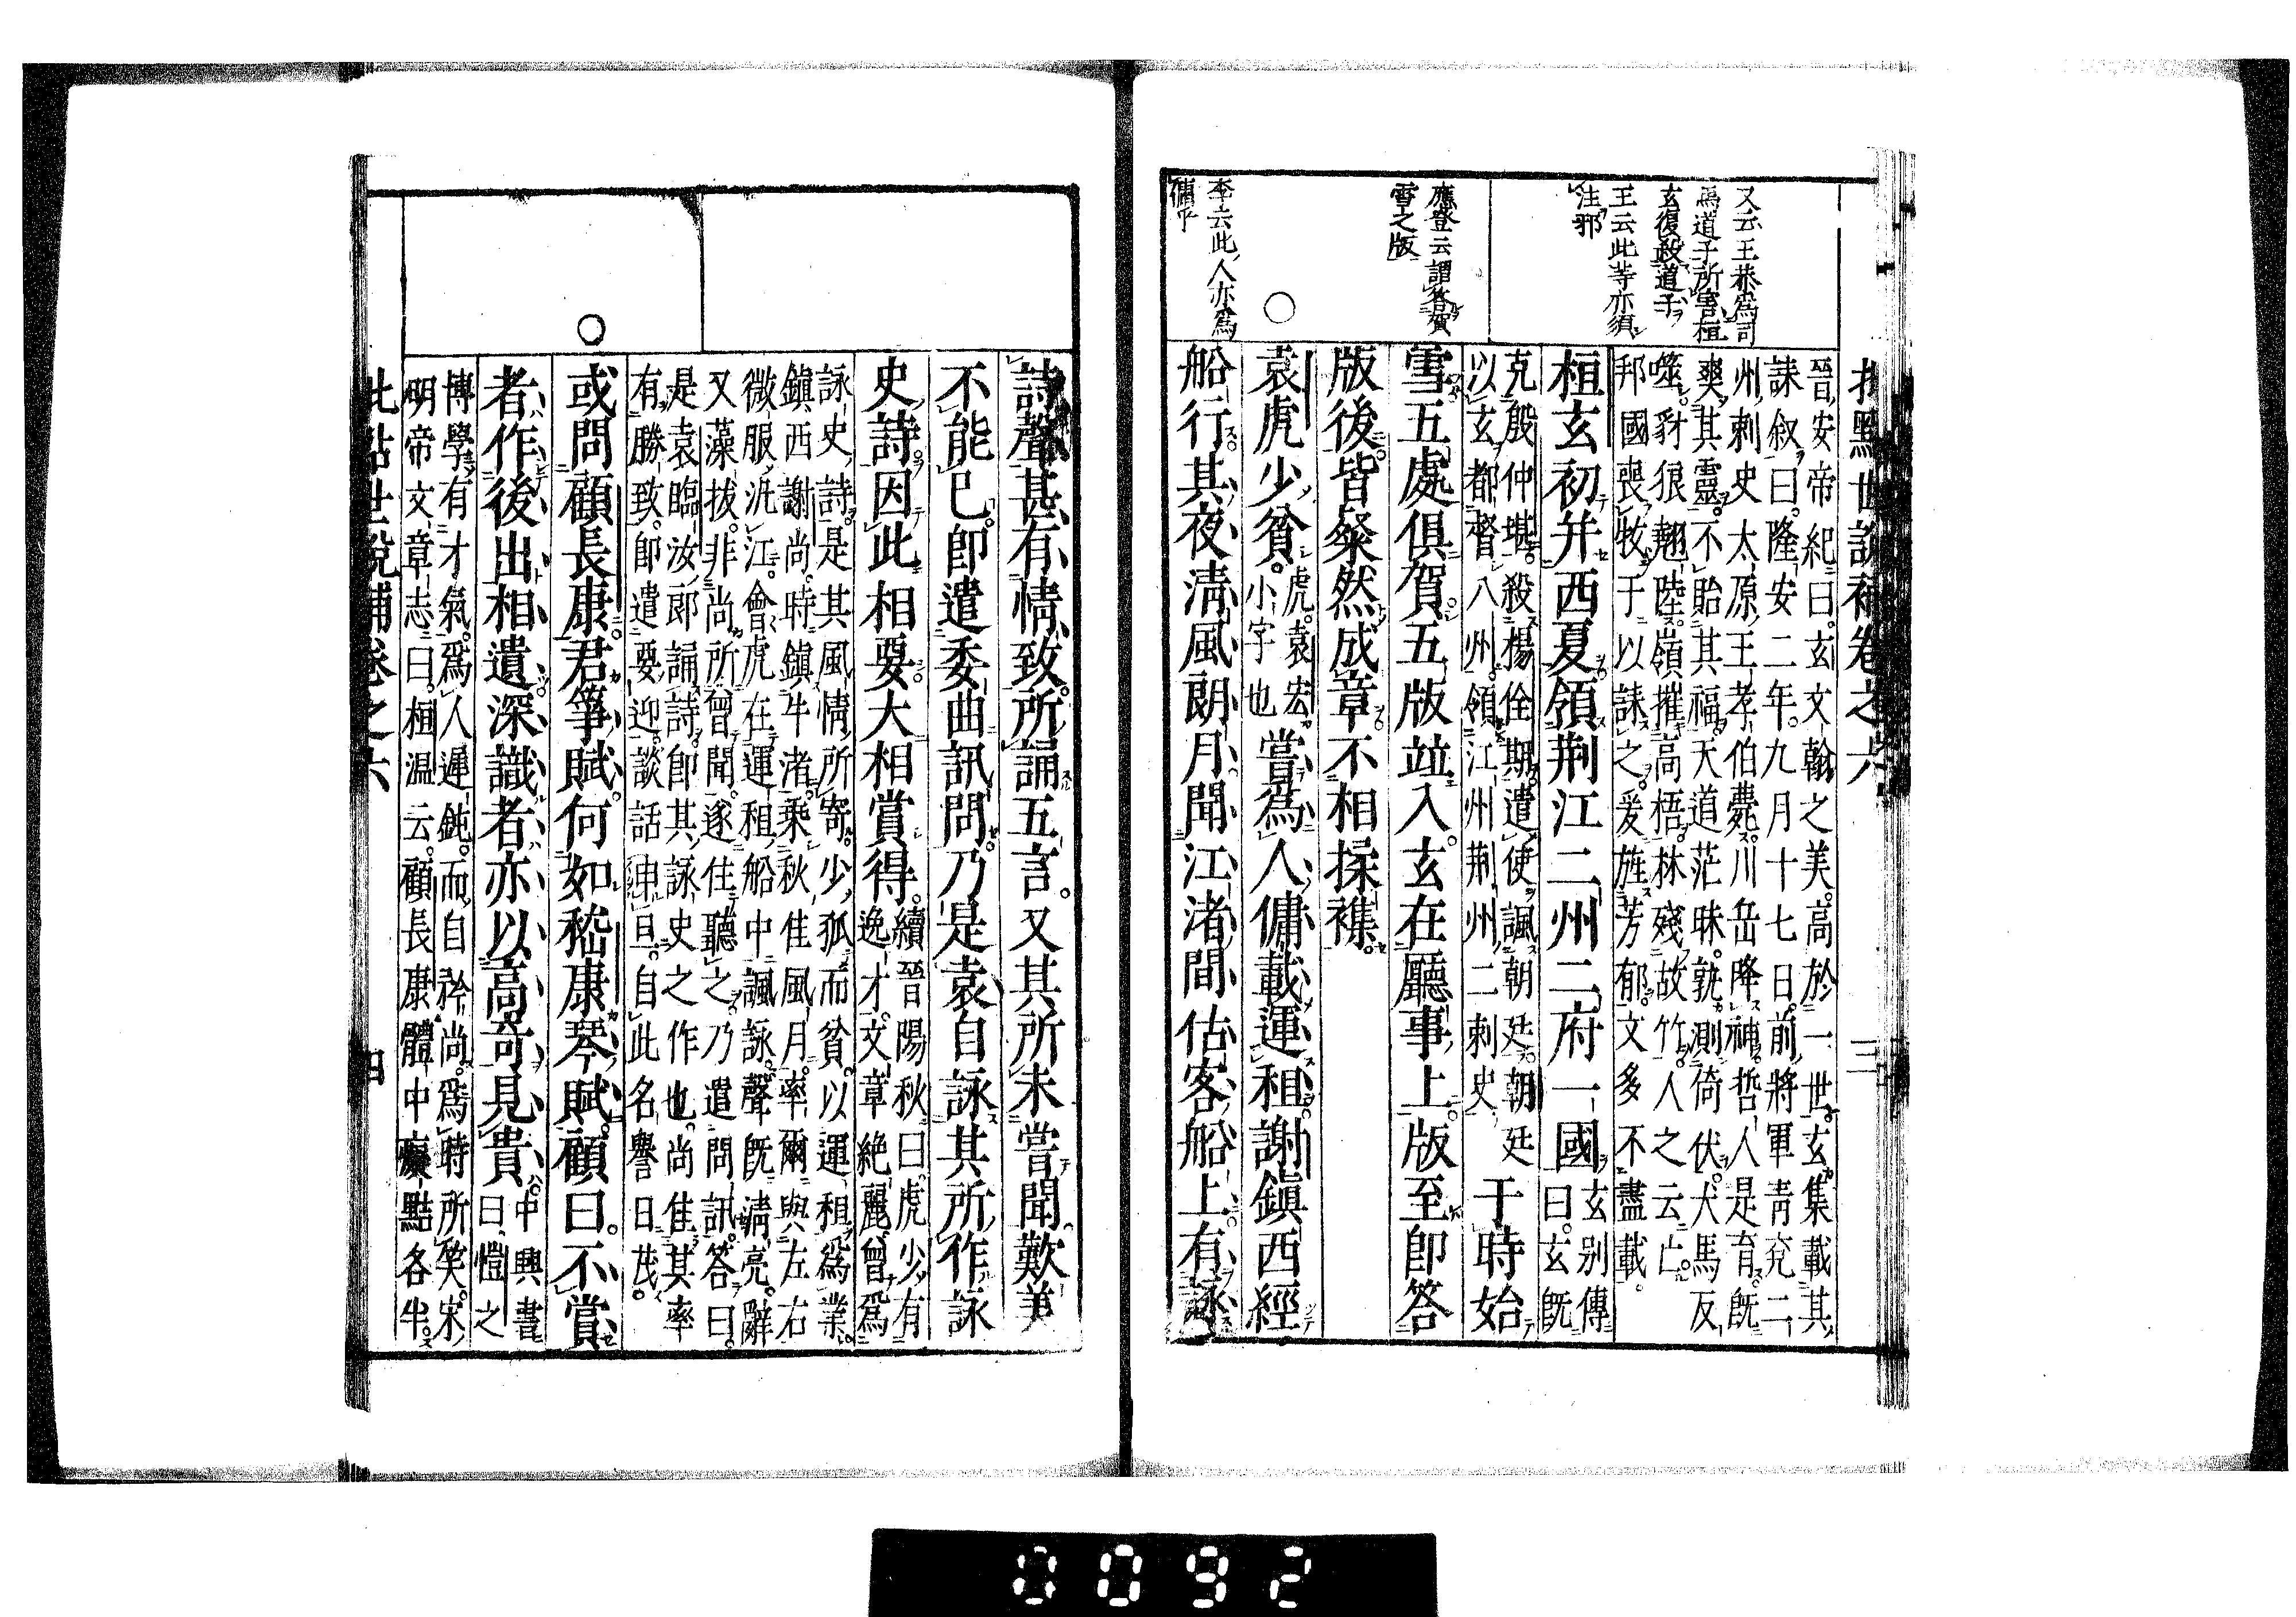 批點世說補卷之六 三
又云王恭爲司
馬道子所害桓
玄復殺道子
王云此等亦須
注邪
應登云謂答賀
雪之版
李云此人亦爲
傭乎
晉安帝紀曰玄文翰之美高於一世玄集載其
誄叙曰隆安二年九月十七日前將軍青兗二
州刺史太原王孝伯薨川岳降神哲人是育既
爽其靈不貽其福天道茫昧孰測倚伏犬馬反
噬豺狼翹陸嶺摧高梧林殘故竹人之云亡
邦國喪牧于以誄之爰旌芳郁文多不盡載
桓玄初并西夏領荆江二州二府一國玄別傳
曰玄既
克殷仲堪殺楊佺期遣使諷朝廷朝廷
以玄都督八州領江州荆州二刺史于時始
雪五處俱賀五版並入玄在廳事上版至即答
版後皆粲然成章不相揉襍
○
袁虎少貧虎袁宏
小字也嘗爲人傭載運租謝鎮西經
船行其夜淸風朗月聞江渚間估客船上有詠
詩聲甚有情致所誦五言又其所未嘗聞歎美
不能已即遣委曲訊問乃是袁自詠其所作詠
史詩因此相要大相賞得續晉陽秋曰虎少有
逸才文章絶麗曾爲
詠史詩是其風情所寄少孤而貧以運租爲業
鎮西謝尚時鎮牛渚乘秋佳風月率爾與左右
微服泝江會虎在運租船中諷詠聲既淸亮辭
又藻拔非尚所曾聞遂住聽之乃遣問訊答曰
是袁臨汝郎誦詩即其詠史之作也尚佳其率
有勝致即遣要迎談話申旦自此名譽日茂
○
或問顧長康君箏賦何如嵇康琴賦顧曰不賞
者作後出相遺深識者亦以高奇見貴中興書
曰愷之
博學有才氣爲人遲鈍而自矜尚爲時所笑宋
明帝文章志曰桓温云顧長康體中癡黠各半
批點世說補卷之六 四
0092